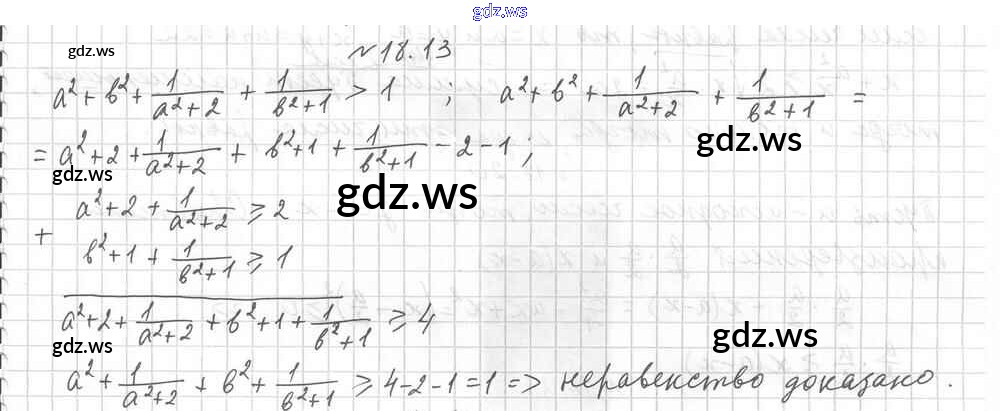 gdz.ws
№ 18.13
gdz.ws
a² + b² + 1/(a²+2) + 1/(b²+1) > 1 ; a² + b² + 1/(a²+2) + 1/(b²+1) =
gdz.ws
= a² + 2 + 1/(a²+2) + b² + 1 + 1/(b²+1) - 2 - 1 ;
gdz.ws
gdz.ws
a² + 2 + 1/(a²+2) ≥ 2
+
b² + 1 + 1/(b²+1) ≥ 1
a² + 2 + 1/(a²+2) + b² + 1 + 1/(b²+1) ≥ 4
gdz.ws
gdz.ws
a² + 1/(a²+2) + b² + 1/(b²+1) ≥ 4 - 2 - 1 = 1 => неравенство доказано.